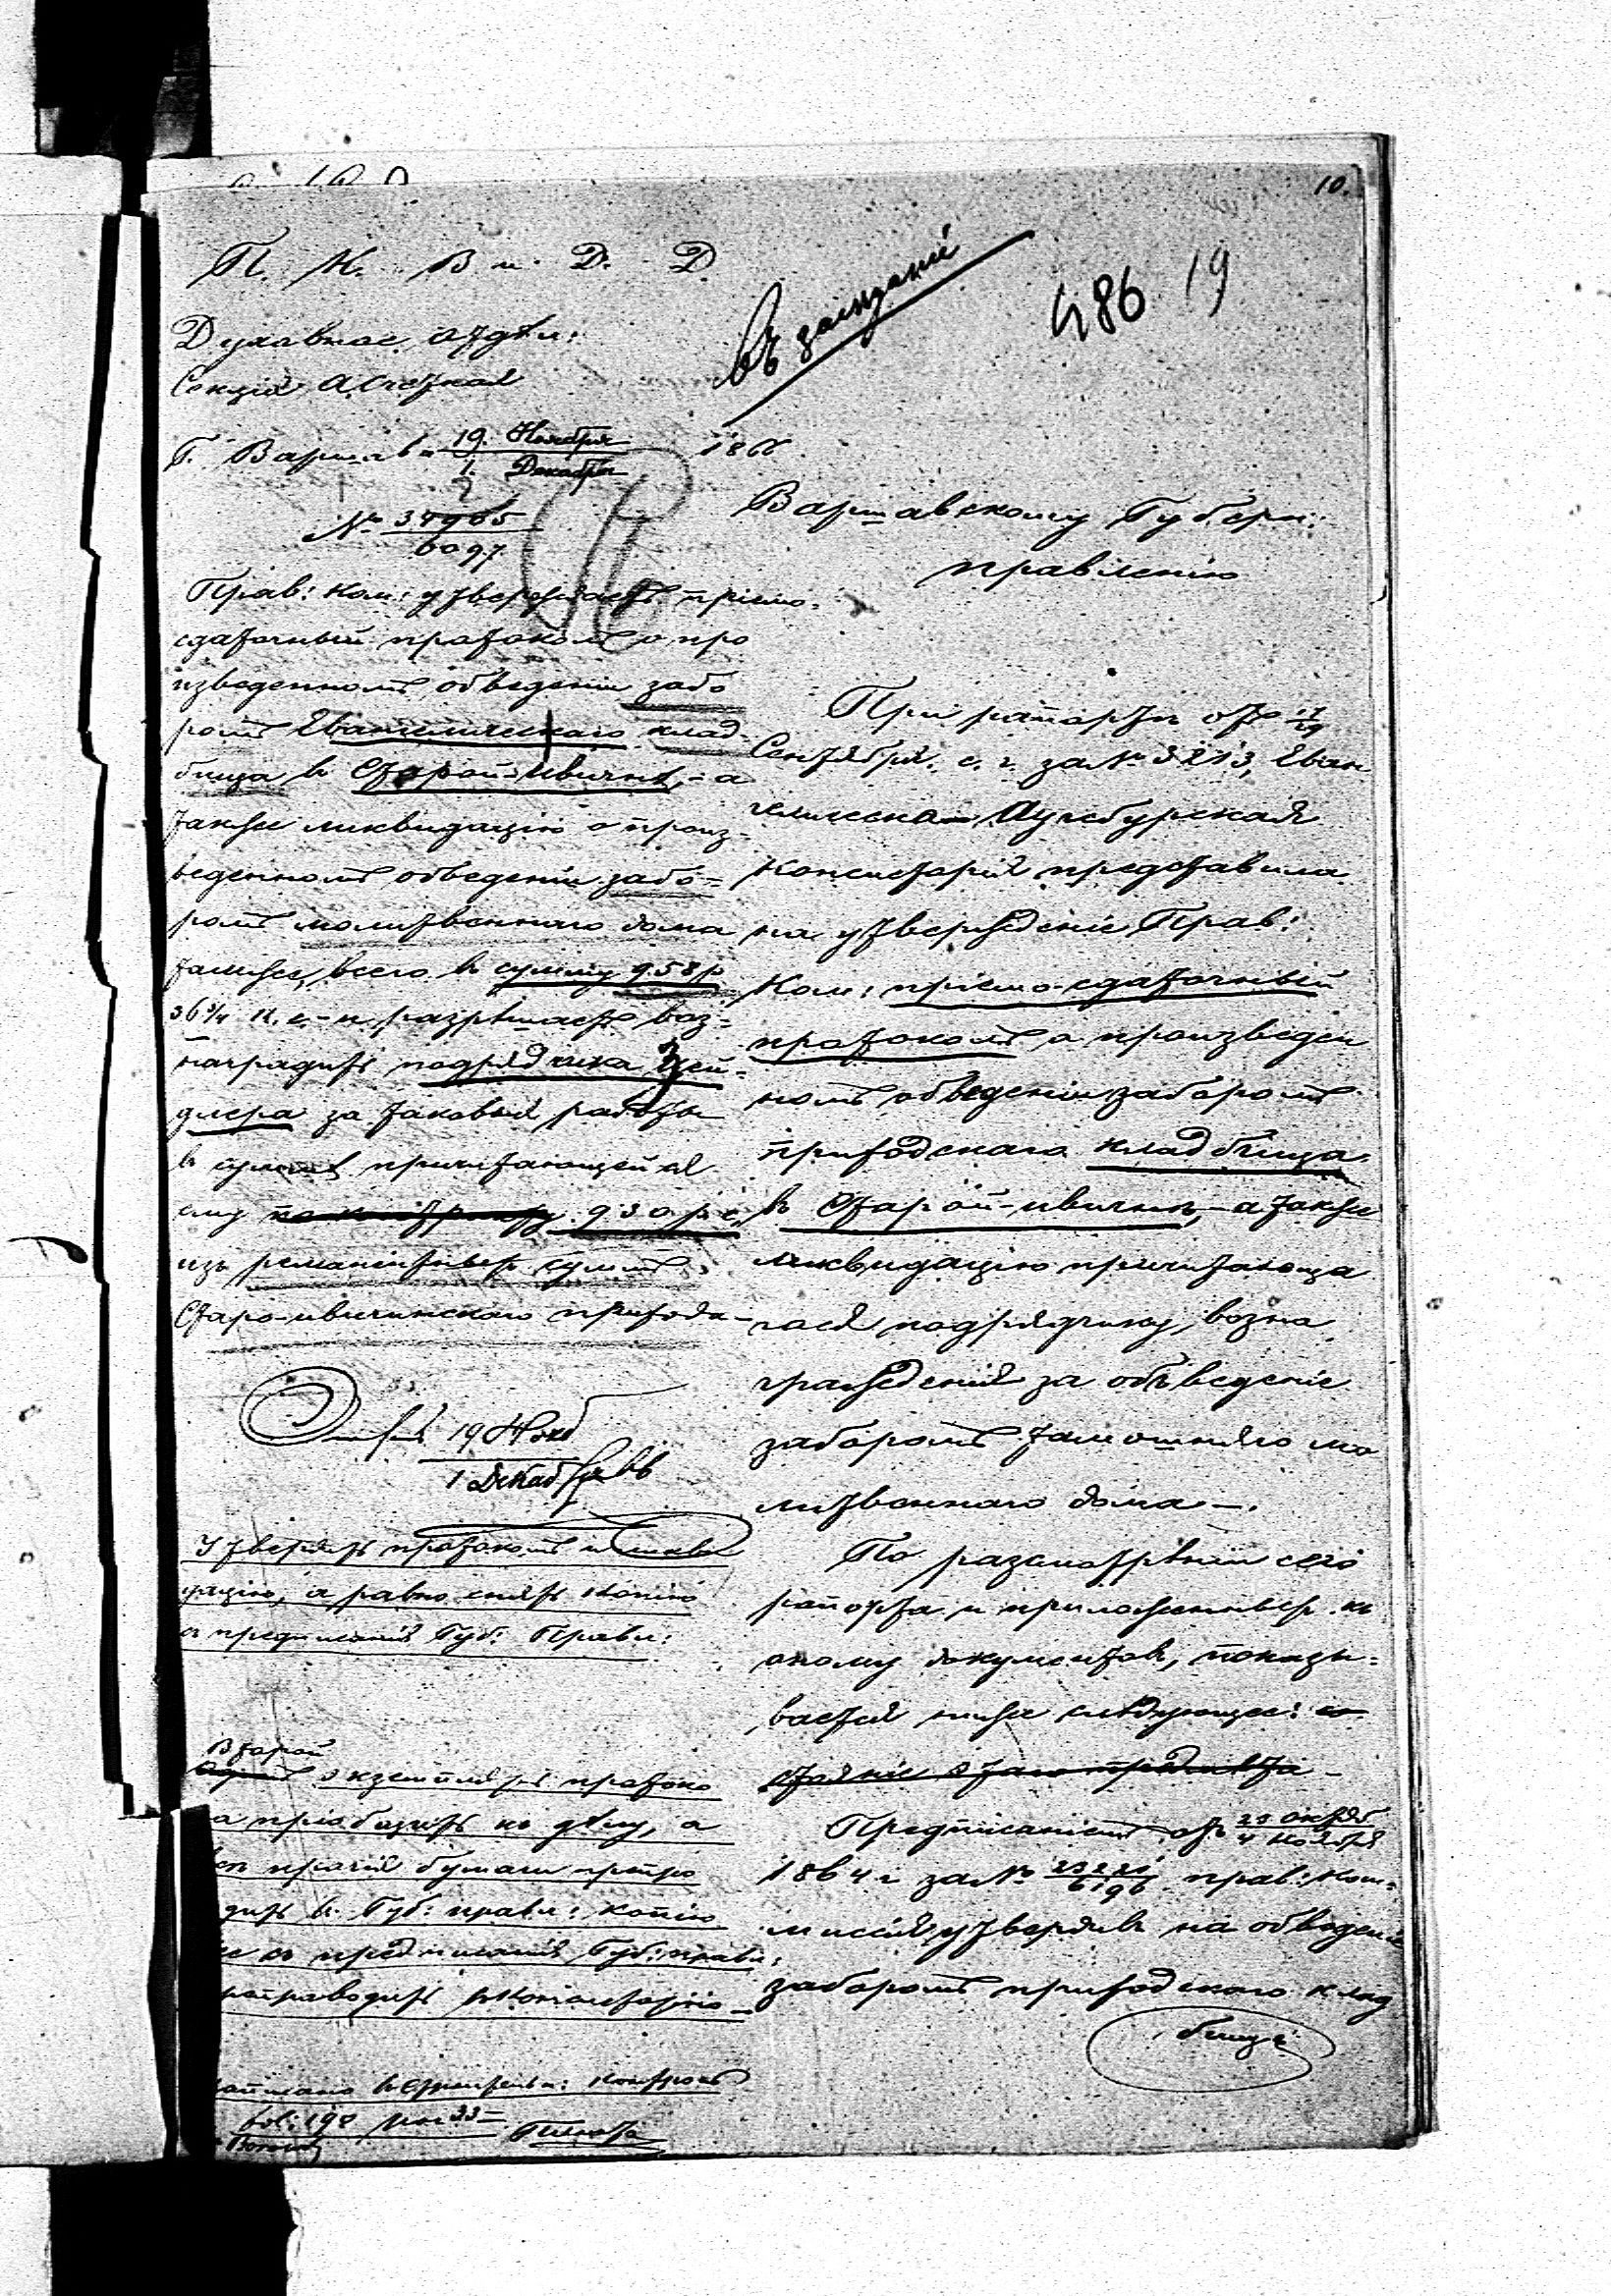 10.
П. К. В и. Д. Д.
въ засѣданіи
486 19
Духовное отдѣл:
Секція
Г. Варшава 19. Ноября 1866
1. Декабря
№
6097
Варшавскому Губерн:
правленію
Прав: Ком: утверждаетъ пріемо-
сдаточный протоколъ о про
изведенномъ обведеніи забо
ромъ Евангелическаго клад-
бища въ Старой-Ивичнѣ, - а
также ликвидацію о произ-
веденномъ обведеніи забо-
ромъ молитвеннаго дома
тамже, всего въ сумму 958 р
36¾ к. с. - и разрѣшаетъ воз-
наградить подрядчика Цей-
длера за таковыя работы
въ суммѣ причитающейся
ему по контракту 930 р с.
изъ ремантныхъ суммъ
Старо-ивичинскаго прихода -
19 Нояб
1 Декабря 66
Утвердить протоколъ и ликви
дацію, а равно снять копію
съ предписанія Губ: Правл:
Второй
экземпляръ протоко
ла пріобщить къ дѣлу, а
прочія бумаги препро
дить въ Губ: правл: копію
же съ предписанія Губ: правл:
препроводить въ Консисторію -
записано въ Контроль
fol: 198
При рапортѣ отъ 17/29
Сентября с. г. за № 3213, Еван
гелическая Аугсбургская
Консисторія представила
на утвержденіе Прав:
Ком: пріемо-сдаточный
протоколъ о произведен
номъ обведеніи заборомъ
приходскаго кладбища
въ Старой-ивичнѣ, - а также
ликвидацію причитающа
гося подрядчику, возна
гражденія за обведеніе
заборомъ тамошняго мо
литвеннаго дома -.
По разсмотрѣніи сего
рапорта и приложенныхъ къ
оному документовъ, показы-
вается ниже слѣдующее: со
стояніе этаго предмета -
Предписаніемъ отъ 23 Октяб
4 Ноября
1864 г за № прав: Ком-
6196
миссія утвердивъ на обведеніе
заборомъ приходскаго клад
бища